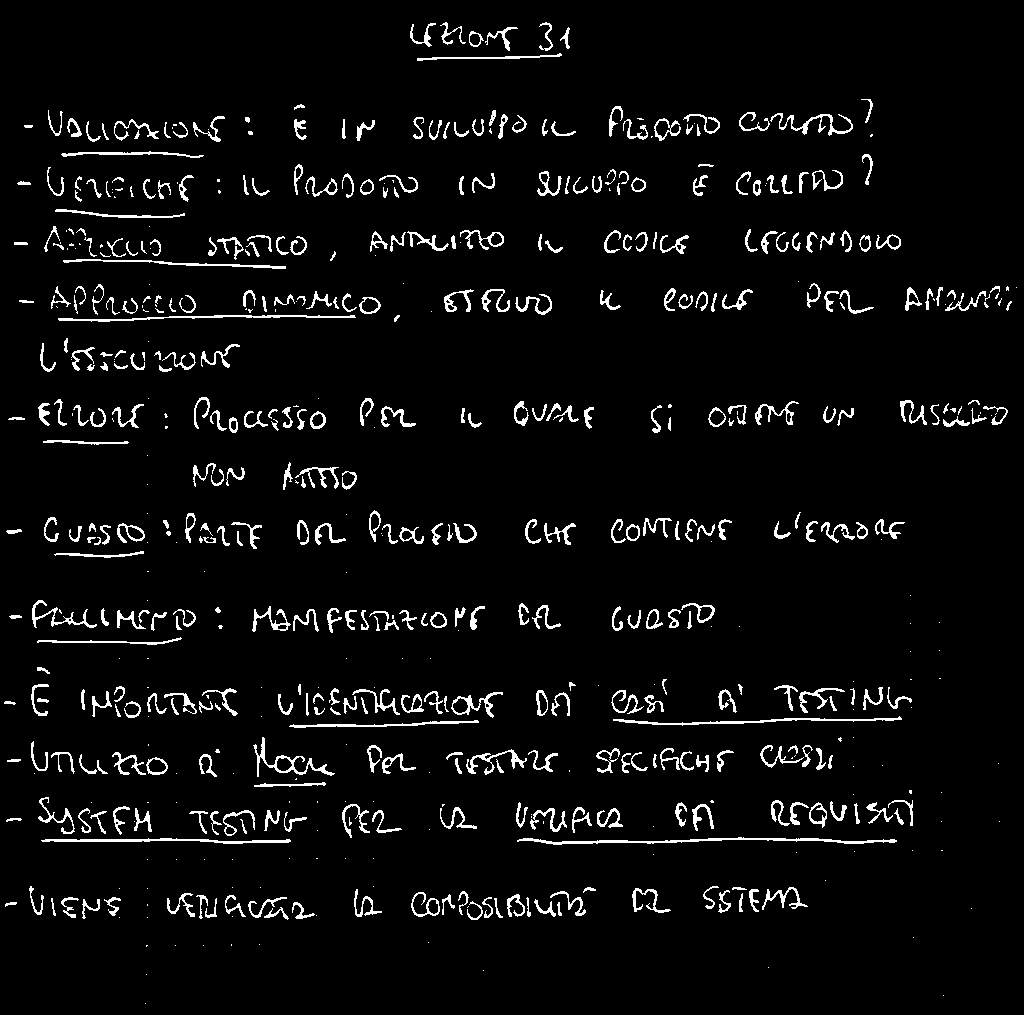 LEZIONE 31
- VALIDAZIONE : È IN SVILUPPO IL PRODOTTO CORRETTO?
- VERIFICHE : IL PRODOTTO IN SVILUPPO È CORRETTO?
- APPROCCIO STATICO, ANALIZZO IL CODICE LEGGENDOLO
- APPROCCIO DINAMICO, ESEGUO IL CODICE PER ANALIZZARE
L'ESECUZIONE
- ERRORE : PROCESSO PER IL QUALE SI OTTIENE UN RISULTATO
NON ATTESO
- GUASTO : PARTE DEL PROGETTO CHE CONTIENE L'ERRORE
- FALLIMENTO : MANIFESTAZIONE DEL GUASTO
- È IMPORTANTE L'IDENTIFICAZIONE DEI CASI DI TESTING
- UTILIZZO DI MOCK PER TESTARE SPECIFICHE CLASSI
- SYSTEM TESTING PER LA VERIFICA DEI REQUISITI
- VIENE VERIFICATA LA COMPOSIBILITÀ DEL SISTEMA